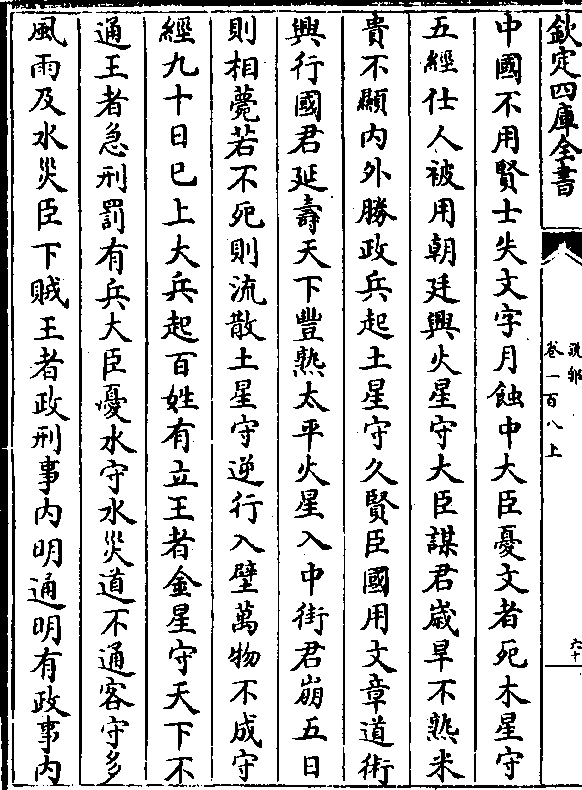 欽定四庫全書
說郛
卷一百八上
六十
中國不用賢士失文字月蝕中大臣憂文者死木星守
五經仕人被用朝廷興火星守大臣謀君歳旱不熟米
貴不顯内外勝政兵起土星守久賢臣國用文章道術
興行國君延壽天下豐熟太平火星入中街君崩五日
則相薨若不死則流散土星守逆行入壁萬物不成守
經九十日已上大兵起百姓有立王者金星守天下不
通王者急刑罰有兵大臣憂水守水災道不通客守多
風雨及水災臣下賊王者政刑事内明通明有政事内